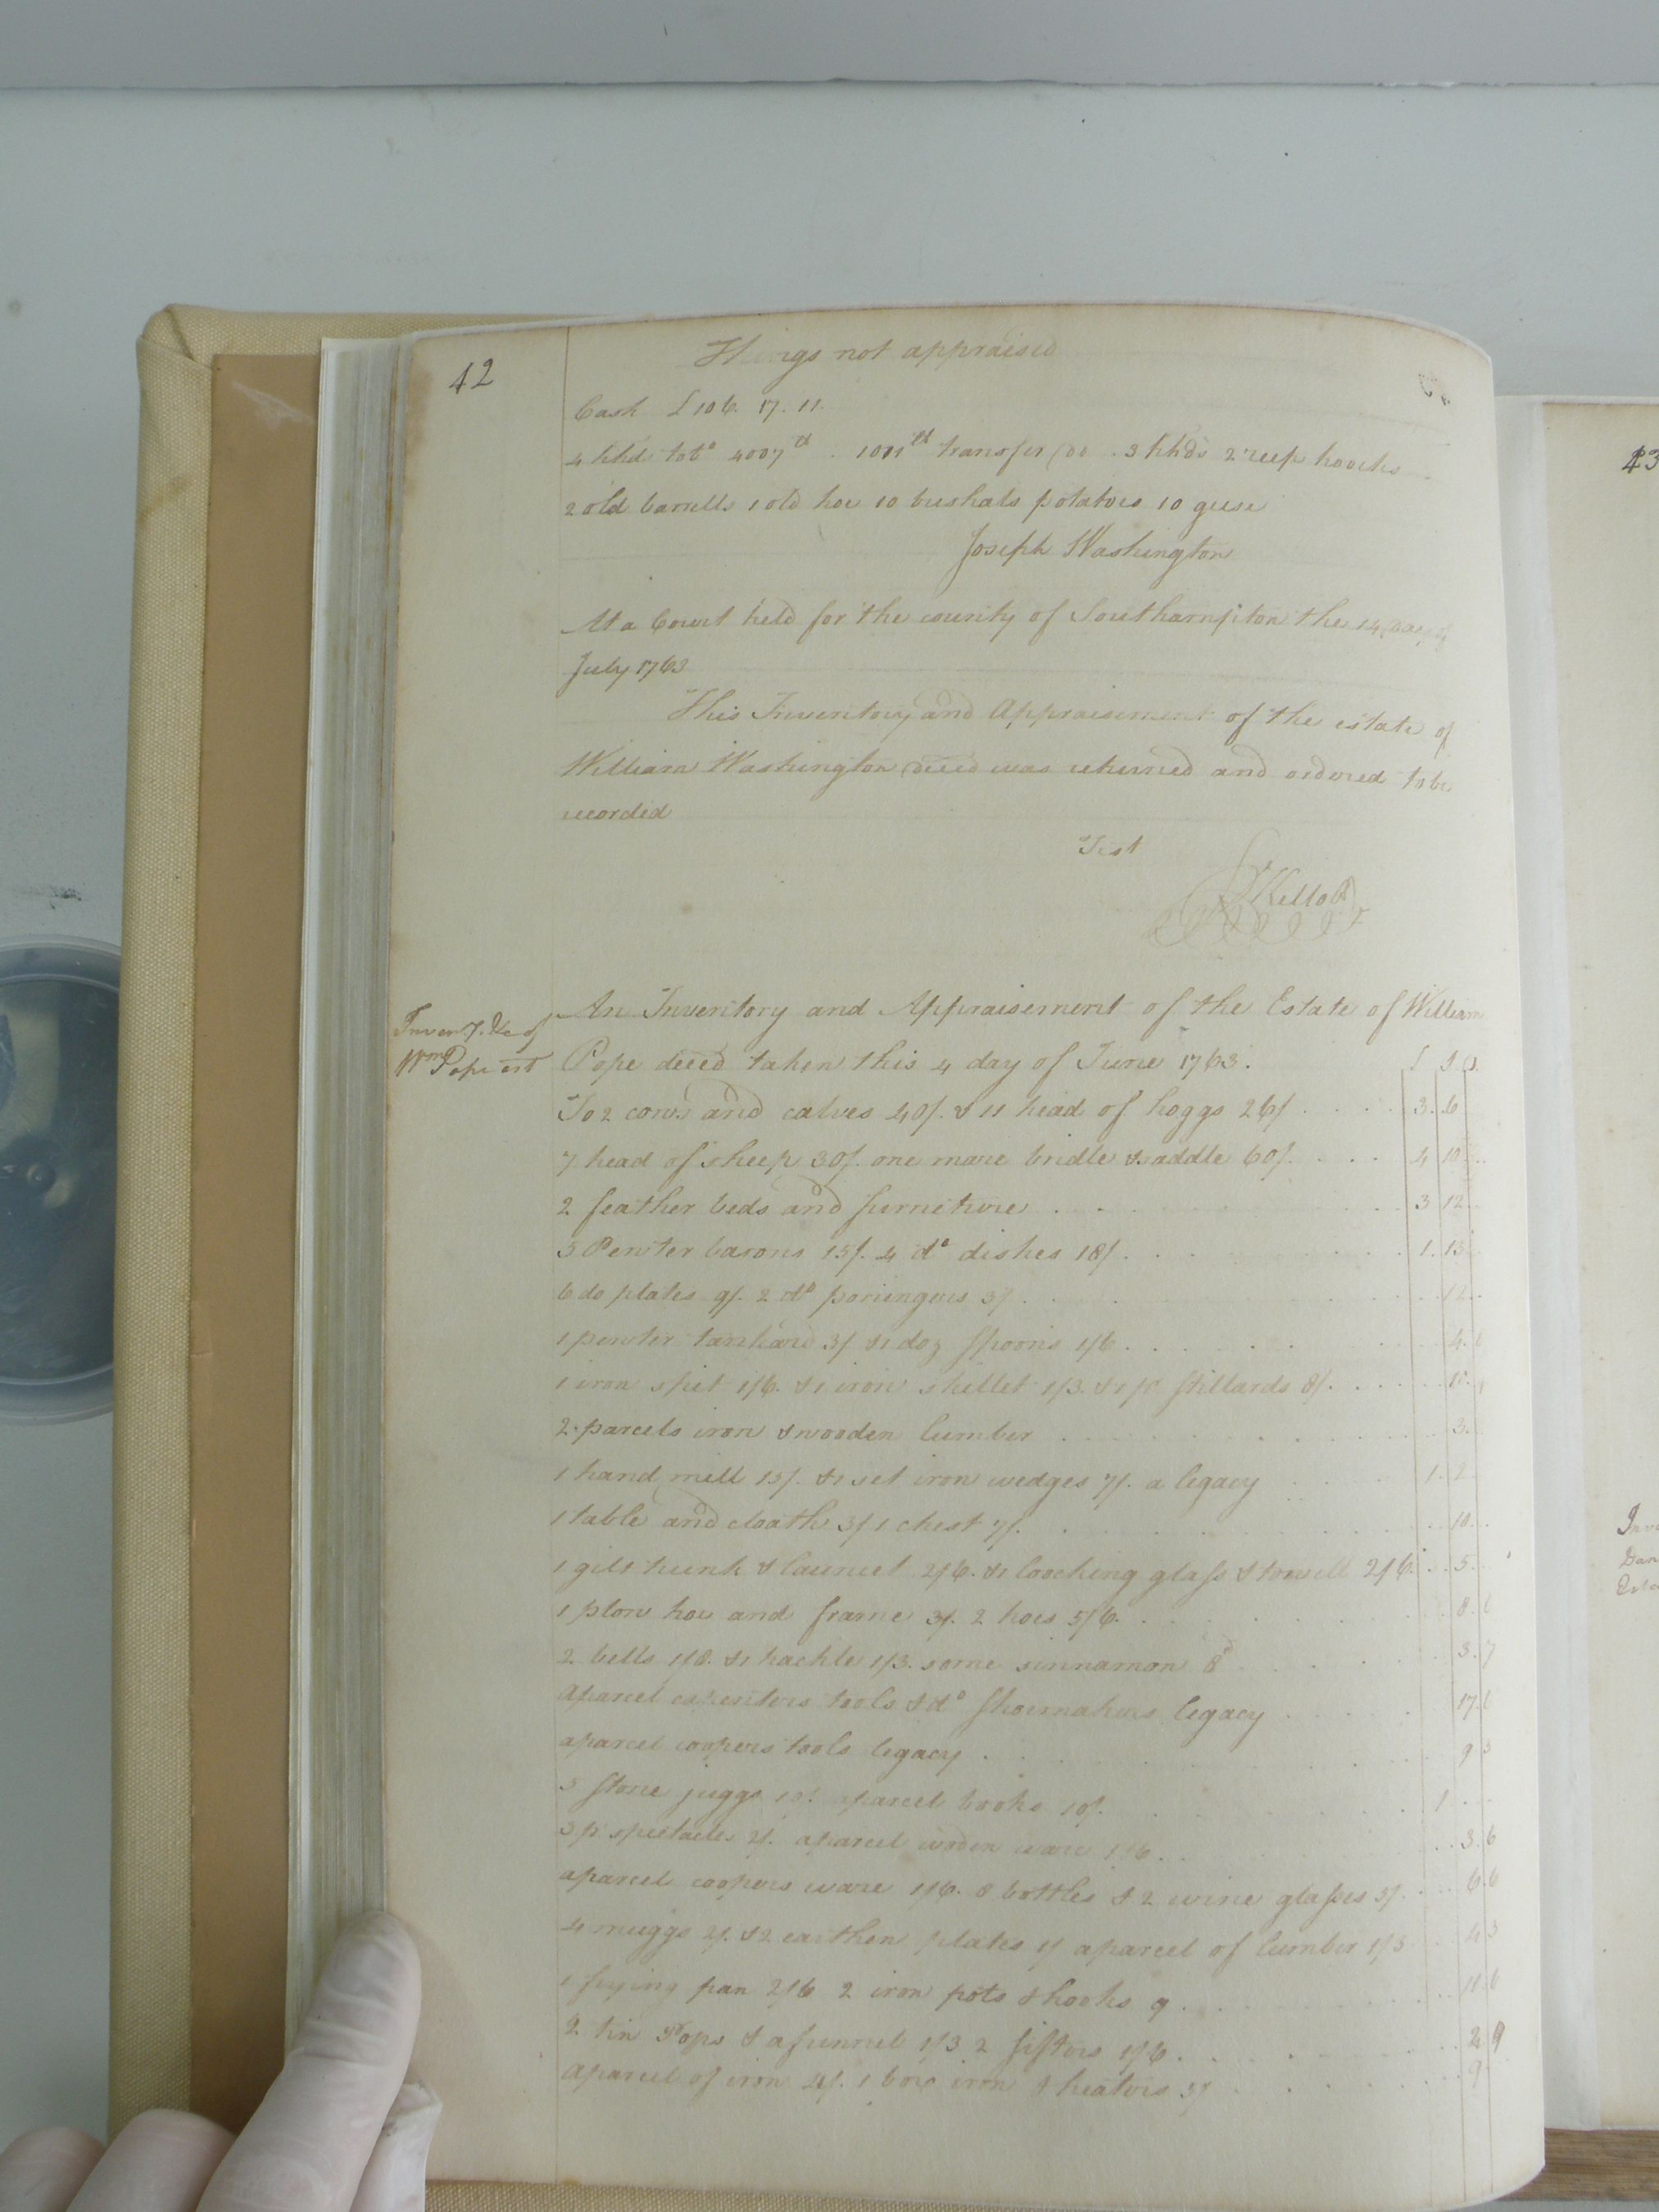 42
Things not appraised
Cash £106. 17. 11.
4 hhd tobo 4007 lb . 1011 lb transfer do . 3 hhds 2 reep hoocks
2 old barrells 1 old hoe 10 bushals potatoes 10 geese
Joseph Washington
At a Court held for the county of Southampton the 14 day of
July 1763
This Inventory and Appraisement of the estate of
William Washington deced was returned and ordered to be
recorded
Test
Kello
Inventy. &c of
Wm Pope est
An Inventory and Appraisement of the Estate of William
Pope deced taken this 4 day of June 1763. £ S. D.
To 2 cows and calves 40/. & 11 head of hoggs 26/ . . . . 3. 6
7 head of sheep 30/. one mare bridle & saddle 60/. . . . 4 10
2 feather beds and furniture . . . 3 12
5 Pewter basons 15/. 4 do dishes 18/. . . . 1. 13
6 do plates 9/. 2 do poringers 3/ . . . 12
1 pewter tankard 3/ & 1 doz spoons 1/6 . . . 4. 6
1 iron spit 1/6. & 1 iron skillet 1/3. & 1 pr stillards 8/. . . .
2 parcels iron & wooden lumber . . . 3.
1 hand mill 15/. & 1 set iron wedges 7/. a legacy . . . 1. 2
1 table and cloath 3/ 1 chest 7/. . . . 10
1 gilt trunk & 2/6. & 1 loocking glass & towell 2/6. . . 5
1 plow hoe and frame 3/. 2 hoes 5/6. . . . 8. 6
2 bells 1/8. & 1 hackle 1/3. some sinnamon 8d . . . 3. 7
aparcel carpenters tools & do shoemakers legacy . . . 17. 6
aparcel coopers tools legacy . . . 9 3
5 stone juggs 10/. aparcel books 10/. . . . 1
3 pr spectacles 2/. aparcel woden ware 1/6 . . . 3. 6
aparcel coopers ware 1/6. 8 bottles & 2 wine glasses 5/. . . . 6. 6
4 muggs 2/. & 2 earthen plates 1/ aparcel of lumber 1/3 . . 4 3
1 frying pan 2/6 2 iron pots & hooks 9 . . . 11. 6
2 tin & a funnel 1/3 2 sifters 1/6 . . . 2 9
aparcel of iron 4/. 1 box iron & heaters 5/ . . . 9
43